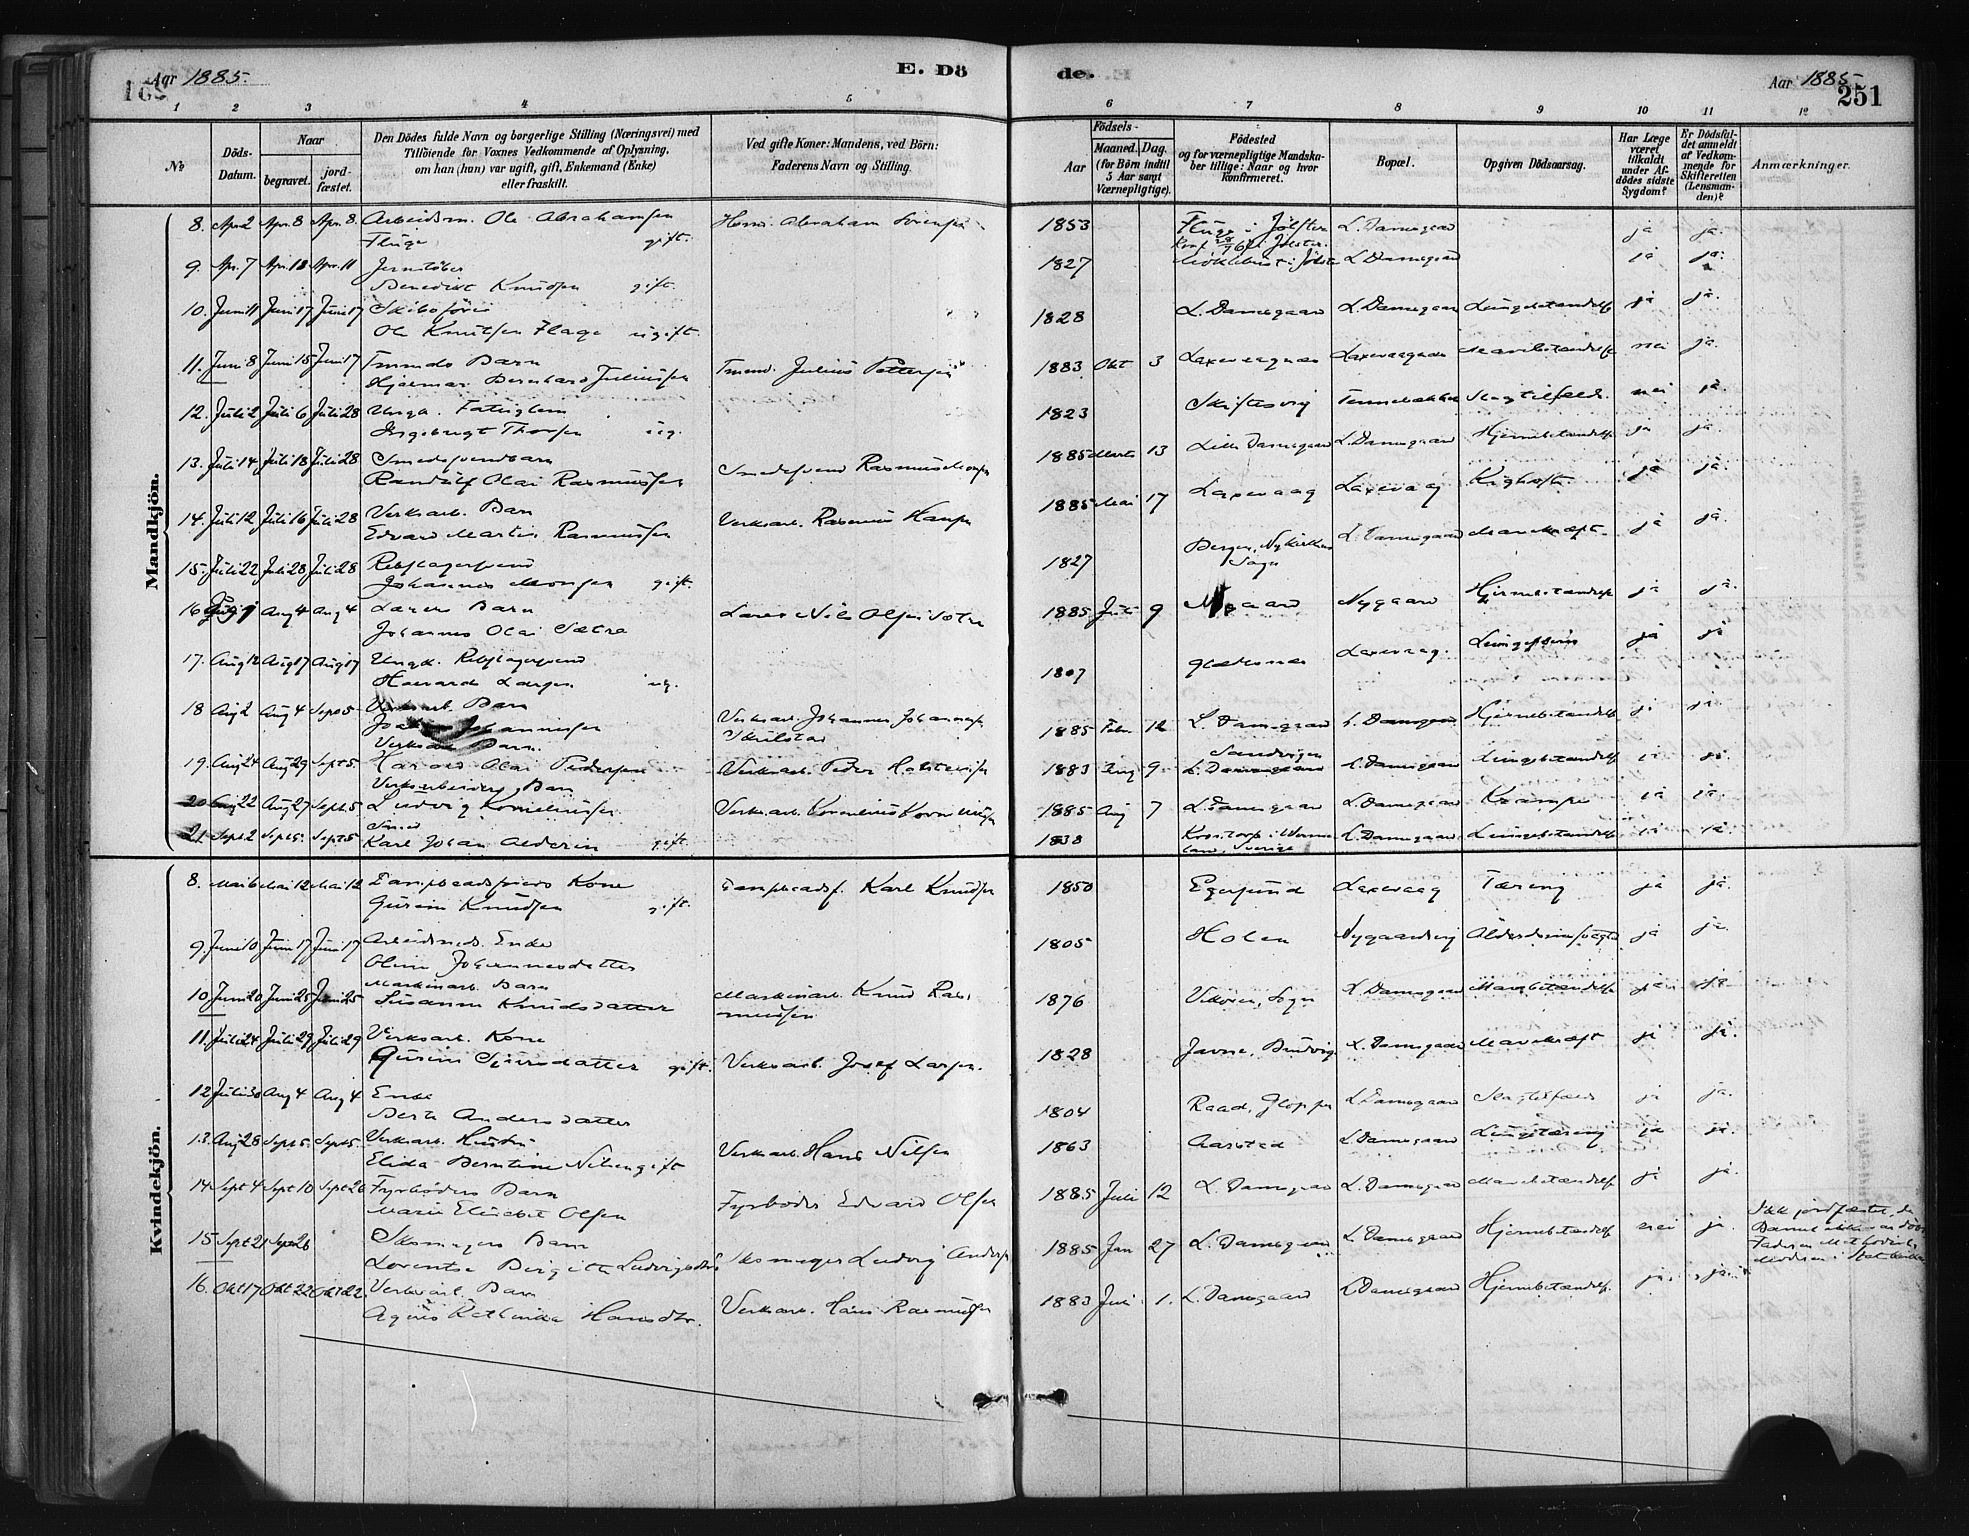 Aar 1885. E. Dö
de. Aar 1885 251
1 2 3 4 5 6 7 8 9 10 11 12
No
Döds-Datum.
Naar
begravet.
jord-fæstet.
Den Dödes fulde Navn og borgerlige Stilling (Næringsvei) med
Tilföiende for Voxnes Vedkommende af Oplysning,
om han (hun) var ugift, gift, Enkemand (Enke)
eller fraskilt.
Ved gifte Koner: Mandens, ved Börn:
Faderens Navn og Stilling.
Födsels-
Aar
Maaned. Dag.
(for Börn indtil
5 Aar samt
Værnepligtige).
Födested
og for værnepligtige Mandska-
ber tillige: Naar og hvor
konfirmeret.
Bopæl.
Opgiven Dödsaarsag.
Har Læge
været
tilkaldt
under Af-
dödes sidste
Sygdom?
Er Dödsfal-
det anmeldt
af Vedkom-
mende for
Skifteretten
(Lensman-
den)?
Anmærkninger.
Mandkjön.
8. Apr 2 Apr. 8 Apr. 8. Arbeidsm. Ole Abrahamsen Abraham 1853 Fluge i Jölster L. Damsgaard ja ja.
Fluge gift.
9. Apr. 7 Apr. 11 Apr. 11 1827 L. Damsgaard ja ja.
Benedikt Knudsen gift.
10. Juni 11 Juni 17 Juni 17 1828 L. Damsgaard L. Damsgaard Lungebetændelse ja ja.
Ole Knutsen Flage ugift.
11. Juni 8 Juni 15 Juni 17 Tmnds Barn Tmnd. Julius Pettersen 1883 Okt 3 Laxevaagnes Laxevaagnes nei ja.
Hjalmar Bernhard Juliussen
12. Juli 2 Juli 6 Juli 28 Ungk. Fattiglem 1823 Skiftesvig Slagtilfælde nei ja.
Ingebrigt Thorsen ug.
13. Juli 14 Juli 18 Juli 28 Smedsvendbarn Smedsvend Rasmus 1885 Marts 13 Lille Damsgaard L. Damsgaard Hjernebetændelse ja ja.
Randulf Olai Rasmussen
14. Juli 12 Juli 16 Juli 28 Verksarb. Barn Verksarb. Rasmus Hansen 1885 Mai 17 Laxevaag Laxevaag Kighoste ja ja.
Edvard Martin Rasmussen
15. Juli 22 Juli 28 Juli 28 Rebslagersvend 1827 Bergen, Nykirkens L. Damsgaard Mavekræft. ja ja.
Johannes Monsen gift. Sogn
16 Aug 4 Aug 4 Lærers Barn Lærer Nils Olsen Sætre 1885 Juli 9 Nygaard Nygaard Hjernebetændelse ja ja.
Johannes Olai Sætre
17. Aug 12 Aug 17 Aug 17 Ungk. Rebslagersvend 1807 Laxevaag. ja ja
Haavard Larsen ug.
18 Aug 2 Aug 4 Sept 5 Verksarb. Barn Verksarb. Johannes Johannesen 1885 Febr. 12 L. Damsgaard L. Damsgaard Hjernebetændelse ja ja.
Johannessen Skulstad
Verksarb Barn. Sandvigen
19. Aug 24 Aug 29 Sept 5. Harald Olai Pedersen Verksarb. Peder 1883 Aug 9 L. Damsgaard L. Damsgaard Lungebetændelse ja ja.
Verksarbeiders Barn
20 Aug 22 Aug 27 Sept 5 Ludvig Korneliussen. Verksarb. Kornelius Korneliussen 1885 Aug 7 L. Damsgaard L. Damsgaard Krampe ja ja.
Smed
21. Sept 2 Sept 5. Sept 5 Karl Johan gift. 1838 L. Damsgaard Lungebetændelse ja ja.
land, Sverige
Kvindekjön.
8. Mai 6 Mai 12 Mai 12 Kone Karl Knudsen 1850 Egersund Laxevaag Tæring ja ja.
Gurine Knudsen gift.
9 Juni 10 Juni 17 Juni 17 Arbeidsmds. Enke 1805 Holen Nygaardsvig ja ja.
Oline Johannesdatter
Maskinarb. Barn
10 Juni 20 Juni 25 Juni 25 Susanne Knudsdatter Maskinarb. Knud Ras- 1876 Vikøren, Sogn L. Damsgaard ja ja
mussen
11. Juli 24 Juli 29 Juli 29 Verksarb. Kone 1828 L. Damsgaard Mavekræft ja ja.
Gurine Sjursdatter gift. Verksarb. Josef Larsen.
12 Juli 30 Aug 4 Aug 4 Enke 1804 Raad, Gloppen L. Damsgaard Slagtilfælde ja ja.
Berte Andersdatter
13. Aug 28 Sept 5. Sept 5. Verksarb. Hustru Verksarb. Hans Nilsen 1863 Aarstad L. Damsgaard Lungetæring ja ja.
Elida Berntine Nilsen gift
14 Sept 4 Sept 10 Sept 26 Fyrbøders Barn Fyrbøder Edvard Olsen 1885 Juli 12 L. Damsgaard L. Damsgaard ja ja.
Marie Elisabet Olsen
15 Sept 21 Sept 26 Skomagers Barn Skomager Ludvig Anders 1885 Jan 27 L. Damsgaard L. Damsgaard Hjernebetændelse nei ja. Ikke jordfæstet, da
Barnet ikke var döbt
Faderen Methodist,
Moderen i Statskirken
Lorentse Birgitte
16. Okt 17 Okt 22 Okt 22. Verksarb. Barn Verksarb. Hans Rasmussen 1883 Juni 1. L. Damsgaard L. Damsgaard Hjernebetændelse. ja ja
Agnes Kathinka Hansdtr.